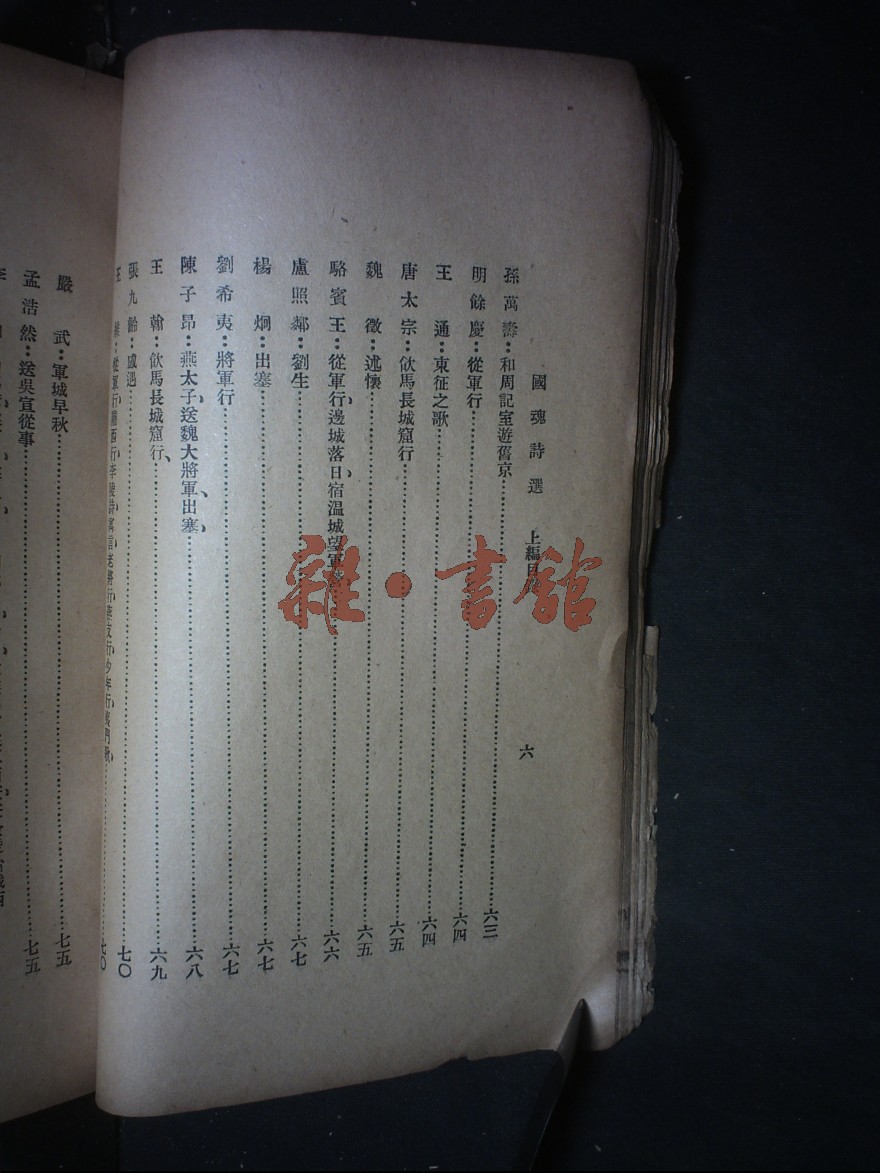 國魂詩選　上編目　六
孫萬壽：和周記室遊舊京……六三
明餘慶：從軍行……六四
王　通：東征之歌……六四
唐太宗：飲馬長城窟行……六五
魏　徵：述懷……六五
駱賓王：從軍行、邊城落日、宿温城望軍……六六
盧照鄰：劉生……六七
楊　炯：出塞……六七
劉希夷：將軍行……六七
陳子昂：燕太子、送魏大將軍出塞、……六八
王　翰：飲馬長城窟行、……六九
張九齡：感遇……七〇
王　維：從軍行、隴西行、李陵詠、老將行、燕支行、少年行、……七〇
嚴　武：軍城早秋……七五
孟浩然：送吳宣從事……七五
雜·書館